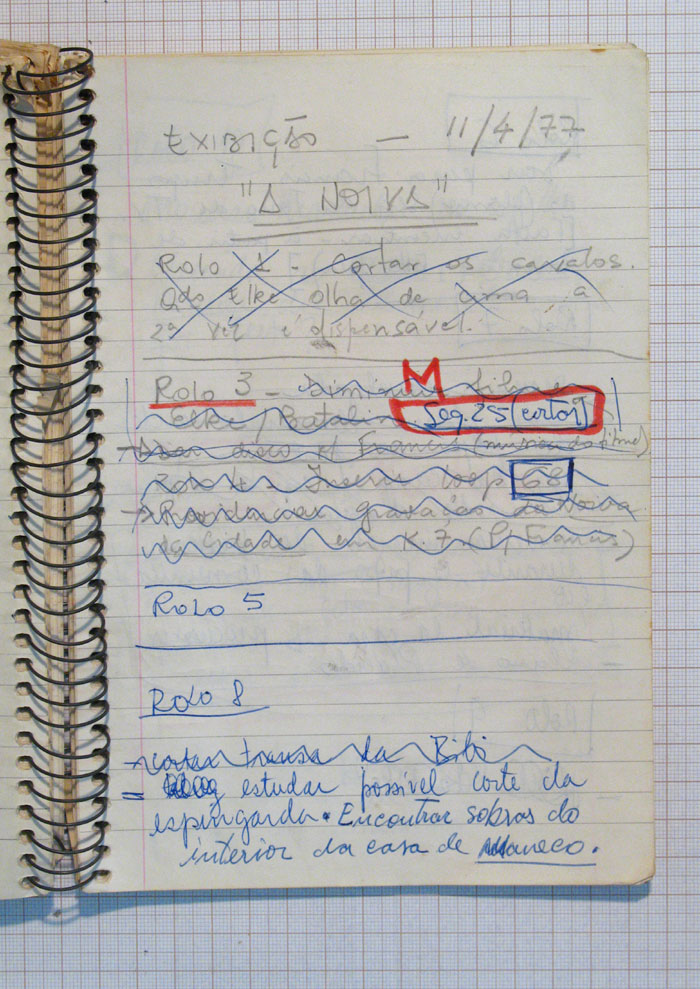 EXIBIÇÃO — 11/4/77
"A NOIVA"
Rolo 1 - Cortar os cavalos.
Qdo Elke olha de cima a
2ª vez é dispensável.
M
Rolo 3 - diminuir
Elke / Batalin Seq. 25 (cortar)
disco p/ Francis (música do filme)
Rolo 4 - Inserir 68
→ Providenciar gravação da Noiva
da Cidade em K.7 (p/ Francis)
ROLO 5
Rolo 8
- cortar transa da Bibi
= estudar possível corte da
espingarda. Encontrar sobras do
interior da casa de Maneco.